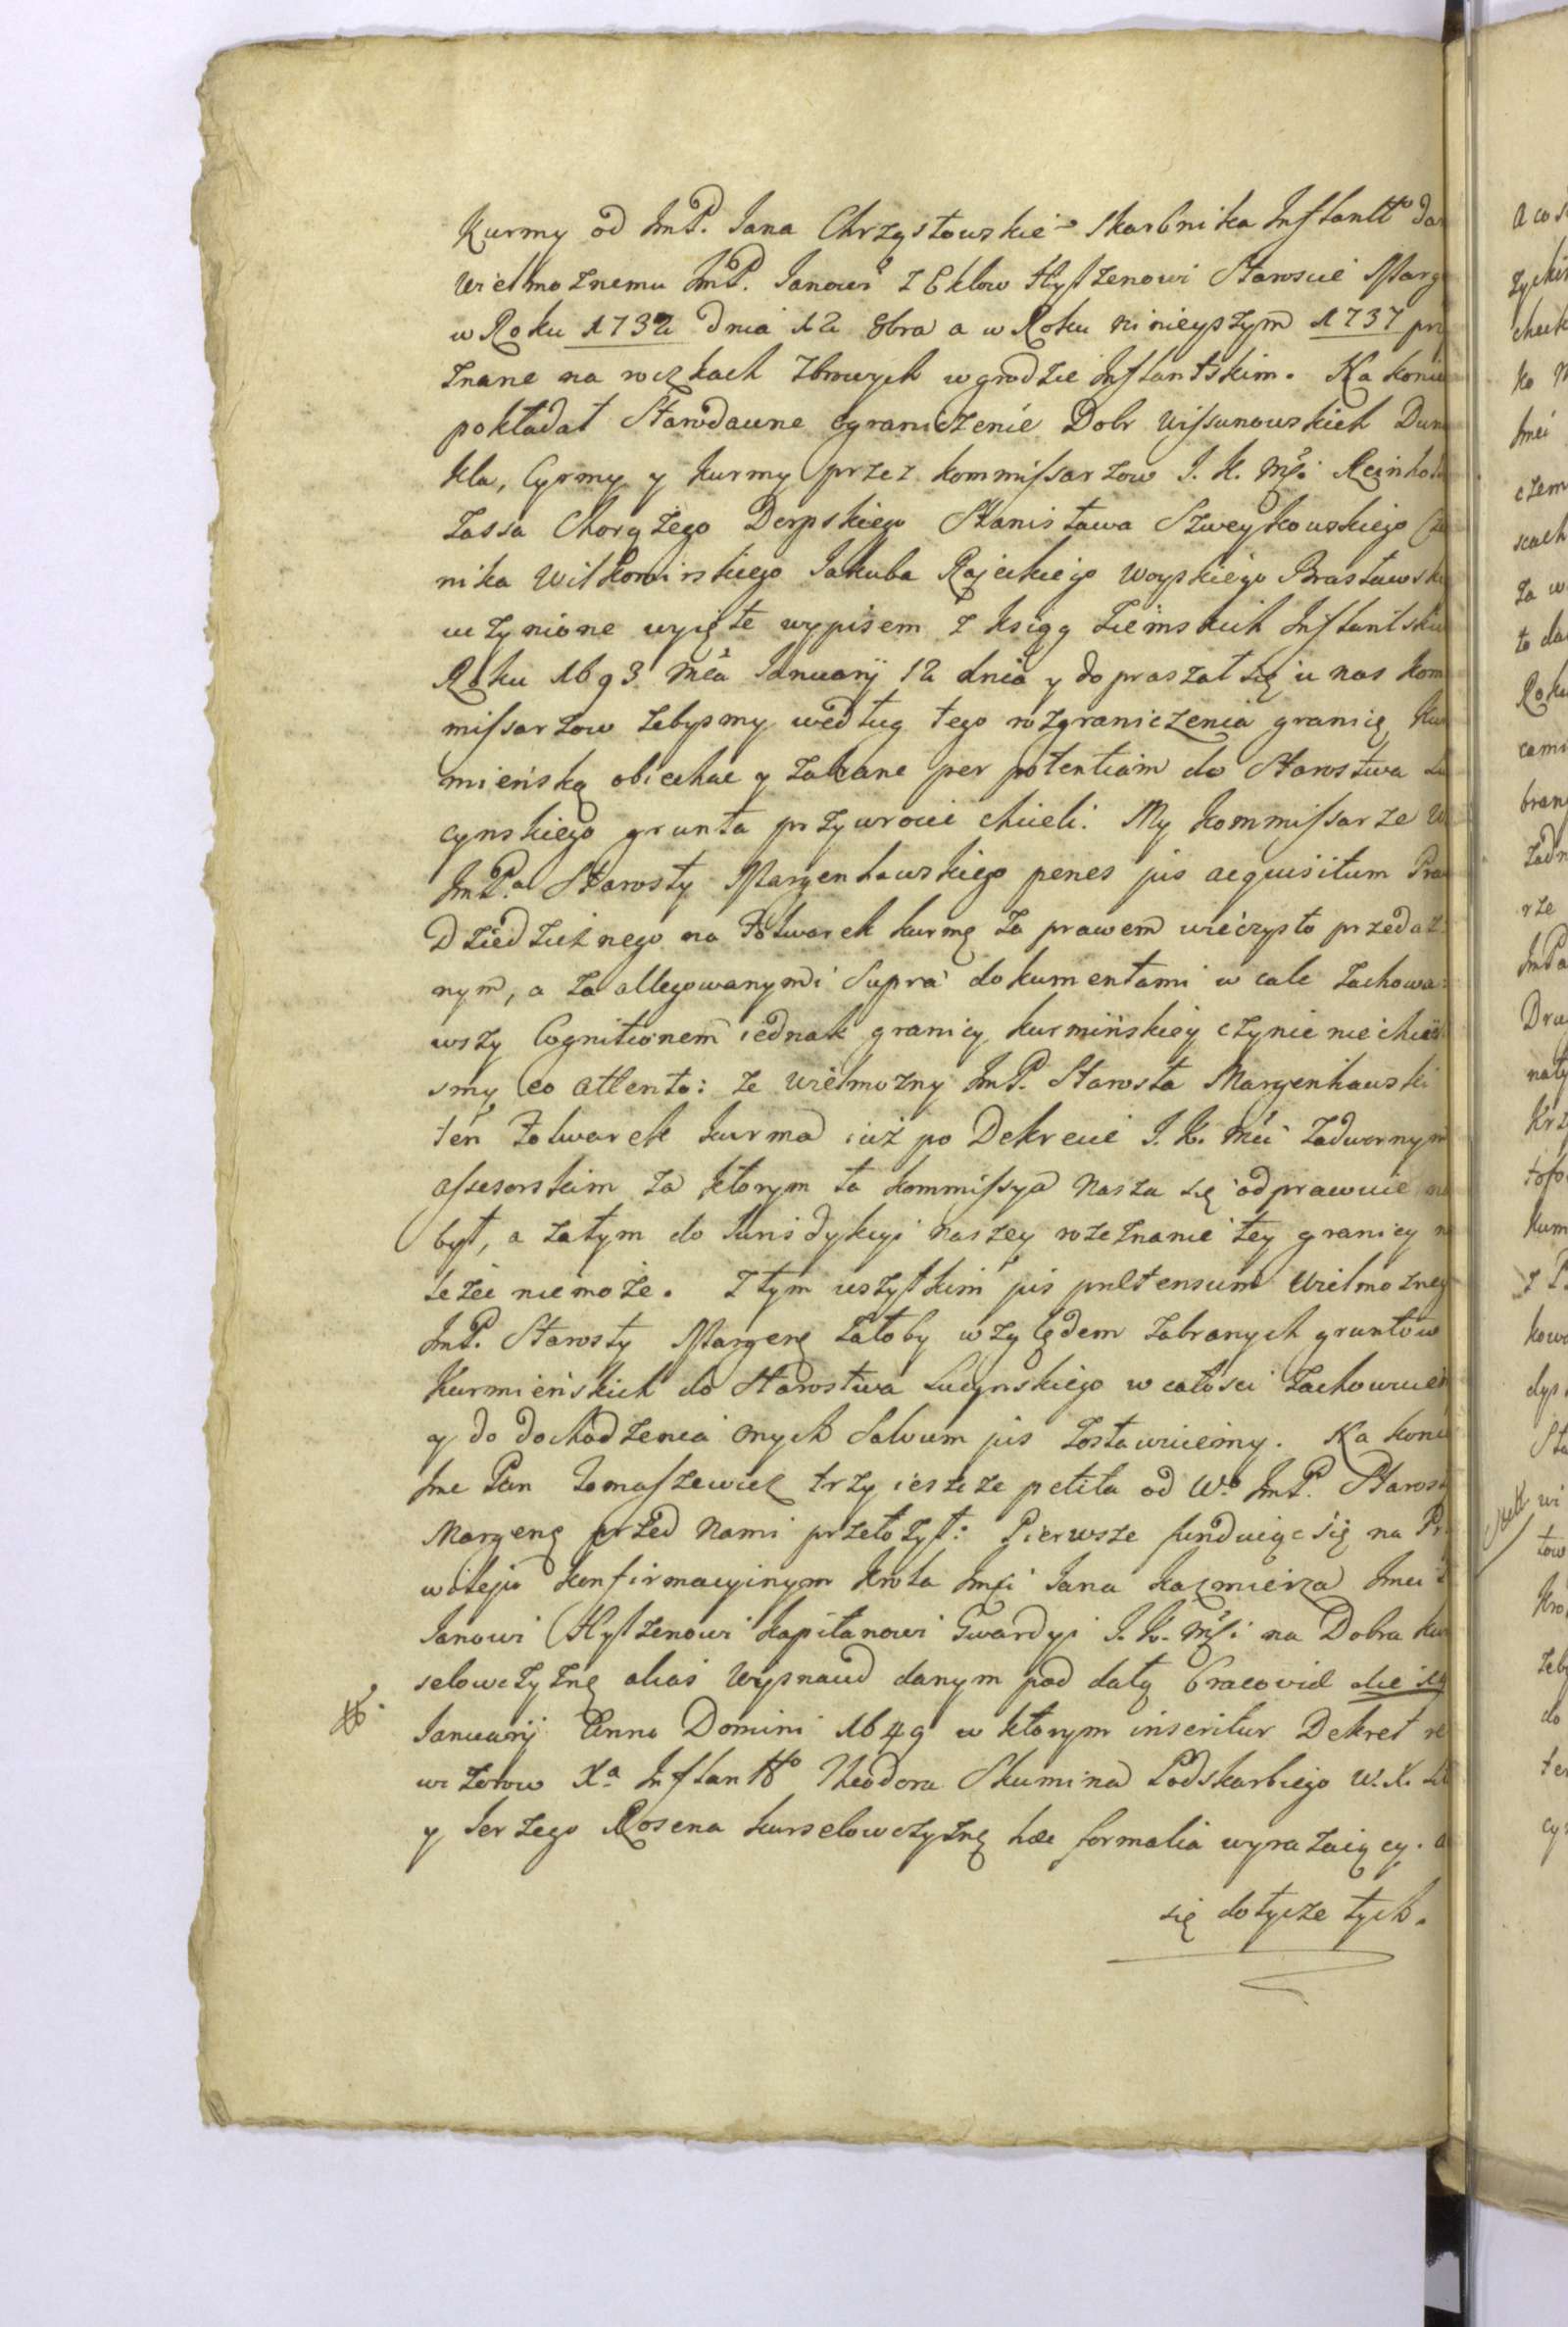 Kurmy od ImP. Jana Chrzystowskie⸗ Skarbnika Inflantto dan
Wielmoznemu ImP. Janowi z Eklow Hylzenowi Staroscie Marg
w Roku 1732 dnia 12 8bra a w Roku ninieyszym 1737 prz
znane na roczkach 7browych w grodzie Inflantskim. Na koniec
pokładał Starodawne ograniczenie Dobr Wissunowskich Dun
kla, Cyrmy y Kurmy przez kommissarzow J. K. Msći Reinhold
Zassa Chorążego Derpskiego Stanisława Szweykowskiego
nika Wiłkomirskiego Jakuba Rajeckiego Woyskiego Brasławski
uczynione wyięte wypisem z ksiąg Ziemskich Inflantskich
Roku 1693 Mca Januarij 12 dnia y dopraszał się u nas kom
missarzow żebysmy według tego rozgraniczenia granicę Kur
mieńską obiechac y zabrane per potentiam do Starostwa Lu
cynskiego grunta przywrocic chcieli. My kommissarze W
ImPa Starosty Margenhauskiego penes jus acquisitum Pra
Dziedzicznego na Folwarek Kurmę za prawem wieczysto przedaz:
nym, a za allegowanymi Supra dokumentami w cale zachowa:
wszy Cognitionem iednak granicy kurmińskiey czynic nie chcieli
smy eo attento: ze Wielmozny ImP. Starosta Margenhauski
ten Folwarek Kurma iuż po Dekrecie J. K. Mci Zadwornym
assesorskim za ktorym ta kommissya nasza się odprawuie na
był, a zatym do Jurisdykcyi naszey rozeznanie tey granicy na
leżec niemoże. Z tym wszytkim jus prætensum Wielmozneg
ImP. Starosty Margenę załoby względem zabranych gruntow
Kurmieńskich do Starostwa Lucynskiego w całosci zachowuie
y do dochodzenia onych Salvum jus zostawuiemy. Na koniec
Ime Pan Tomaszewicz trzy ieszcze petita od Wo ImP. Starost
Margenę przed nami przełozył: Pierwsze funduiąc się na Pr
wileju konfirmacyinym Krola Imći Jana Kazmierza Imci
Janowi Hylzenowi Kapitanowi Gwardyi J. K. Mśći na Dobra Kur
selowczyznę alias Wypnaud danym pod datą Cracoviæ die 19
Januarij Anno Domini 1649 w ktorym inseritur Dekret re
wizorow Xa Inflantto Theodora Skumina Podskarbiego W. X. Lit
y Jerzego Rosena kurselowczyznę hæc formalia wyrazaiący. a
się dotycze tych.